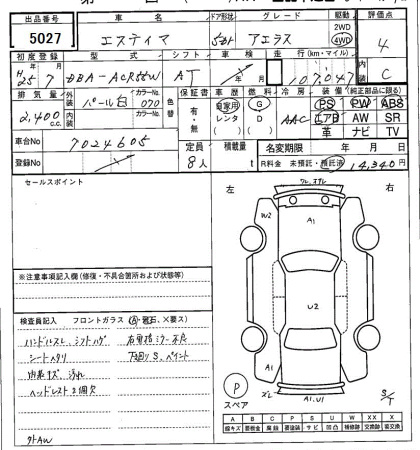 出品番号 車名 ドア形状 グレード 駆動 評価点
5027 エスティマ 5ドア アエラス 2WD 4WD 4
初度登録 型式 シフト 車検 走行(km・マイル) 内装
H25/7 DBA-ACR55W AT 107,047 C
排気量 外装 カラーNo. 色替 保証書 車歴 燃料 冷房 装備(純正部品に限る)
2,400cc パール白 070 有・無 自家用 レンタ G D AAC PS PW ABS
エアB AW SR
革 ナビ TV
内装 カラーNo.
車台No 7024605
定員 積載量 名変期限 年 月 日
登録No 8人 t R料金 未預託・預託済 14,340円
セールスポイント
左 右
ワレ
W2 A1
U2
※注意事項記入欄(修復・不具合箇所および状態等)
検査員記入 フロントガラス (A・飛石、×要ス)
ハンドルスレ、シフトハゲ
シートヘタリ 下回りS、ペイント
内装キズ、汚れ
ヘッドレスト2個欠
A1 A1
P
スペア X2 A1.U1 S/T
外AW
A B C P S U W X XX
線キズ 要板金 腐蝕 要塗装 サビ 凹凸 補修跡 要交換 交換済